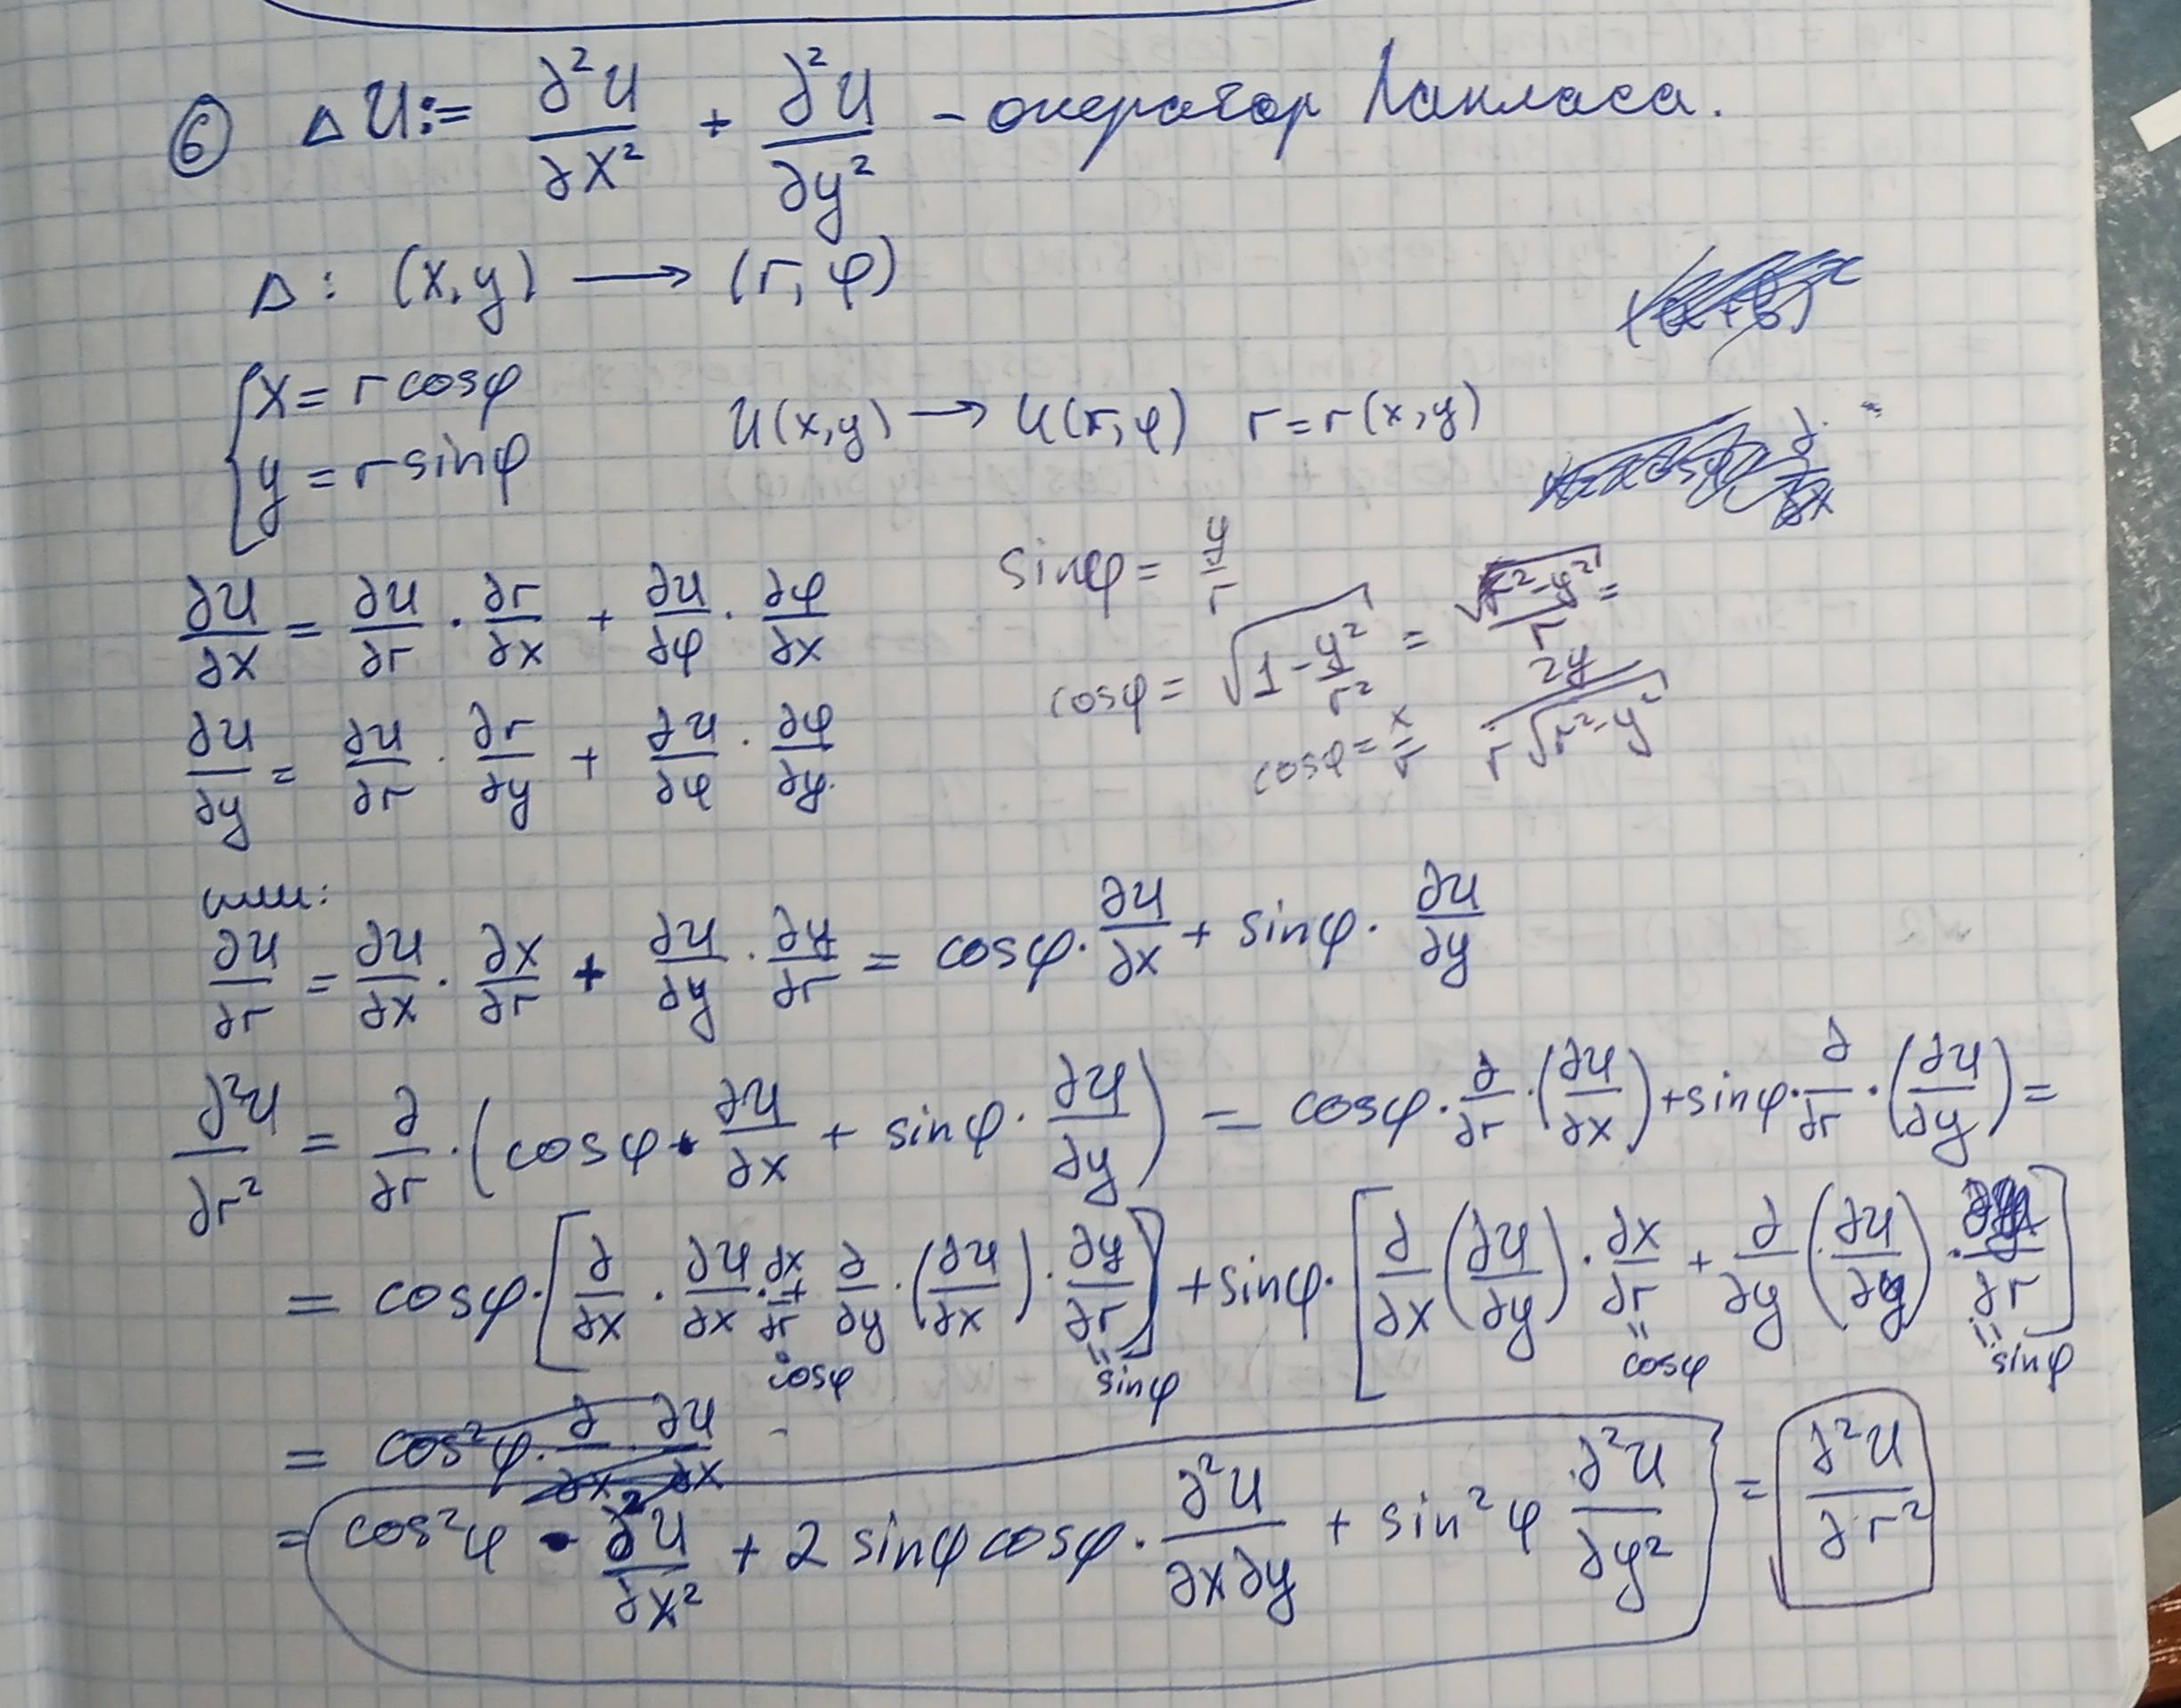 ⑥ Δu := ∂²u/∂x² + ∂²u/∂y² - оператор Лапласа.
Δ: (x,y) → (r,φ)
{ x = r cosφ
y = r sinφ
u(x,y) → u(r,φ) r = r(x,y)
∂u/∂x = ∂u/∂r · ∂r/∂x + ∂u/∂φ · ∂φ/∂x
∂u/∂y = ∂u/∂r · ∂r/∂y + ∂u/∂φ · ∂φ/∂y
sinφ = y/r
cosφ = √(1 - y²/r²) = √(r²-y²)/r =
cosφ = x/r
2y/(r√(r²-y²))
или:
∂u/∂r = ∂u/∂x · ∂x/∂r + ∂u/∂y · ∂y/∂r = cosφ · ∂u/∂x + sinφ · ∂u/∂y
∂²u/∂r² = ∂/∂r · (cosφ · ∂u/∂x + sinφ · ∂u/∂y) = cosφ · ∂/∂r · (∂u/∂x) + sinφ · ∂/∂r · (∂u/∂y) =
= cosφ · [∂/∂x · ∂u/∂x · ∂x/∂r + ∂/∂y · (∂u/∂x) · ∂y/∂r] + sinφ · [∂/∂x (∂u/∂y) · ∂x/∂r + ∂/∂y (∂u/∂y) · ∂y/∂r]
cosφ sinφ cosφ sinφ
= cos²φ · ∂/∂x · ∂u/∂x
= cos²φ · ∂²u/∂x² + 2 sinφ cosφ · ∂²u/∂x∂y + sin²φ ∂²u/∂y² = ∂²u/∂r²